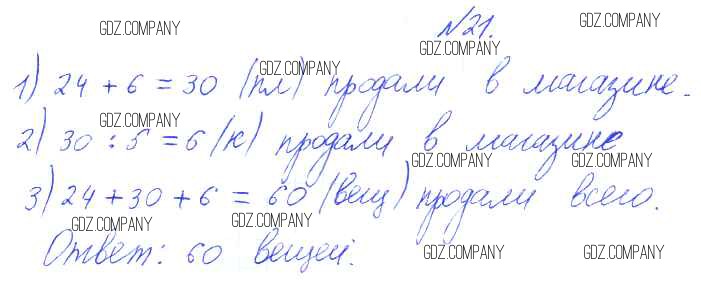 GDZ.COMPANY №21. GDZ.COMPANY
GDZ.COMPANY
1) 24 + 6 = 30 (пл) продали в магазине.
GDZ.COMPANY
GDZ.COMPANY
2) 30 : 5 = 6 (к) продали в магазине
GDZ.COMPANY GDZ.COMPANY
3) 24 + 30 + 6 = 60 (вещ) продали всего.
GDZ.COMPANY GDZ.COMPANY
Ответ: 60 вещей.
GDZ.COMPANY GDZ.COMPANY